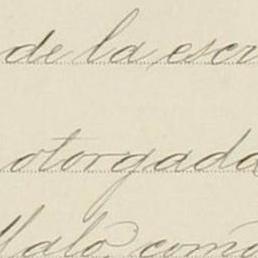 de la escr
otorgada
llaló como